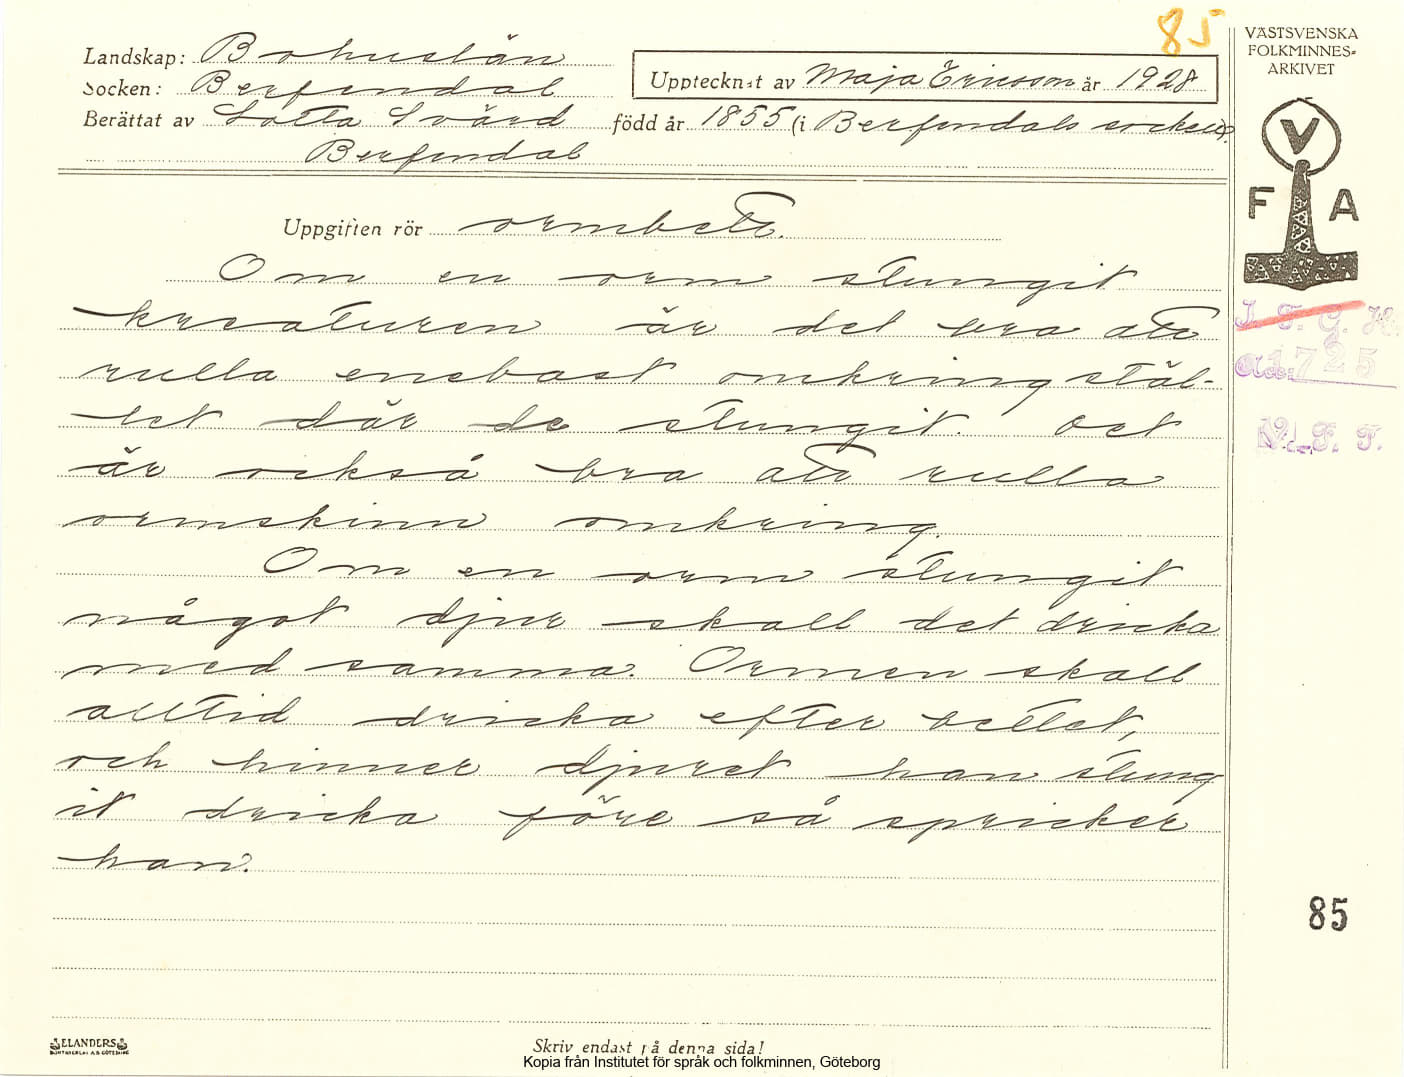 85
Landskap: Bohuslän
Socken: Berfendal
Upptecknat av Maja Ericsson år 1928
Berättat av Lotta Svärd född år 1855 (i Berfendals socken).
Berfendal
VÄSTSVENSKA
FOLKMINNES-
ARKIVET
V
F A
Uppgiften rör ormbett.
Om en orm stungit
kreaturen är det bra att
rulla enebast omkring stäl-
let där de stungit. Det
är också bra att rulla
ormskinn omkring.
Om en orm stungit
något djur skall det dricka
med samma. Ormen skall
alltid dricka efter bettet,
och hinner djuret han stung
it dricka före så spricker
han.
I. F. G. H.
Acc. 1725
N. F. F.
85
ELANDERS
BOKTRYCKERI A.B. GÖTEBORG
Skriv endast på denna sida!
Kopia från Institutet för språk och folkminnen, Göteborg